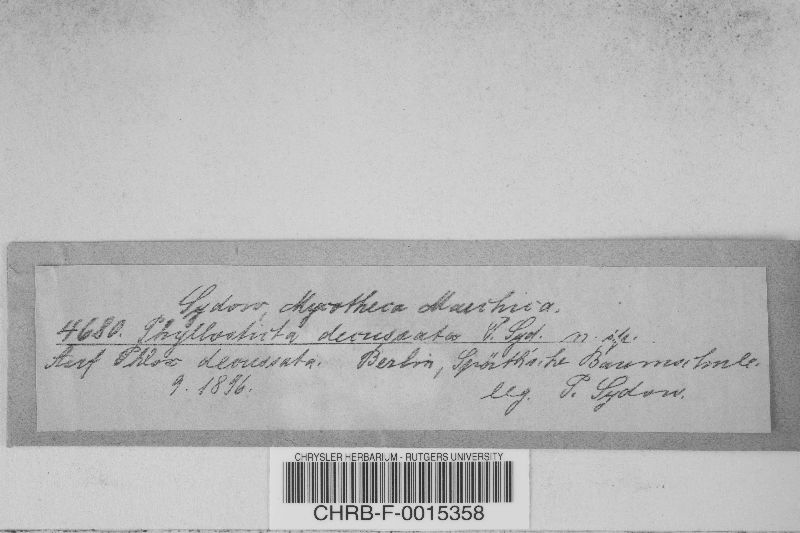 Sydow, Mycotheca Marchica.
4680. Phyllosticta decussata P. Syd. n. sp.
Auf Phlox decussata. Berlin, Späth'sche Baumschule.
9. 1896. leg. P. Sydow.
CHRYSLER HERBARIUM - RUTGERS UNIVERSITY
CHRB-F-0015358